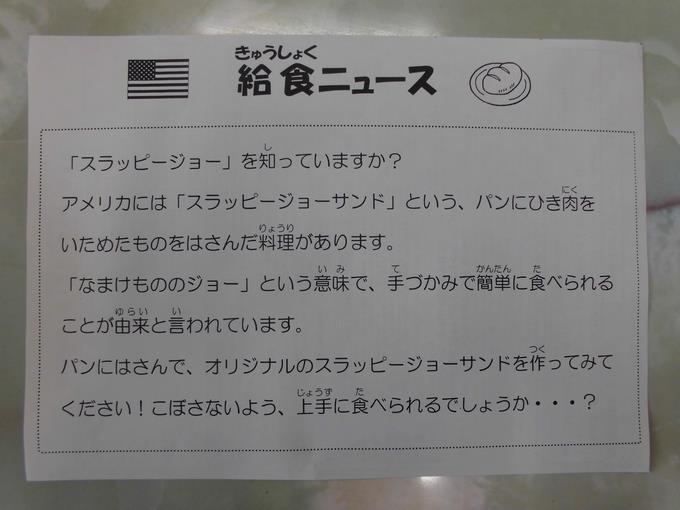 きゅうしょく
給食ニュース
「スラッピージョー」を知っていますか？
アメリカには「スラッピージョーサンド」という、パンにひき肉を
いためたものをはさんだ料理があります。
「なまけもののジョー」という意味で、手づかみで簡単に食べられる
ことが由来と言われています。
パンにはさんで、オリジナルのスラッピージョーサンドを作ってみて
ください！こぼさないよう、上手に食べられるでしょうか・・・？